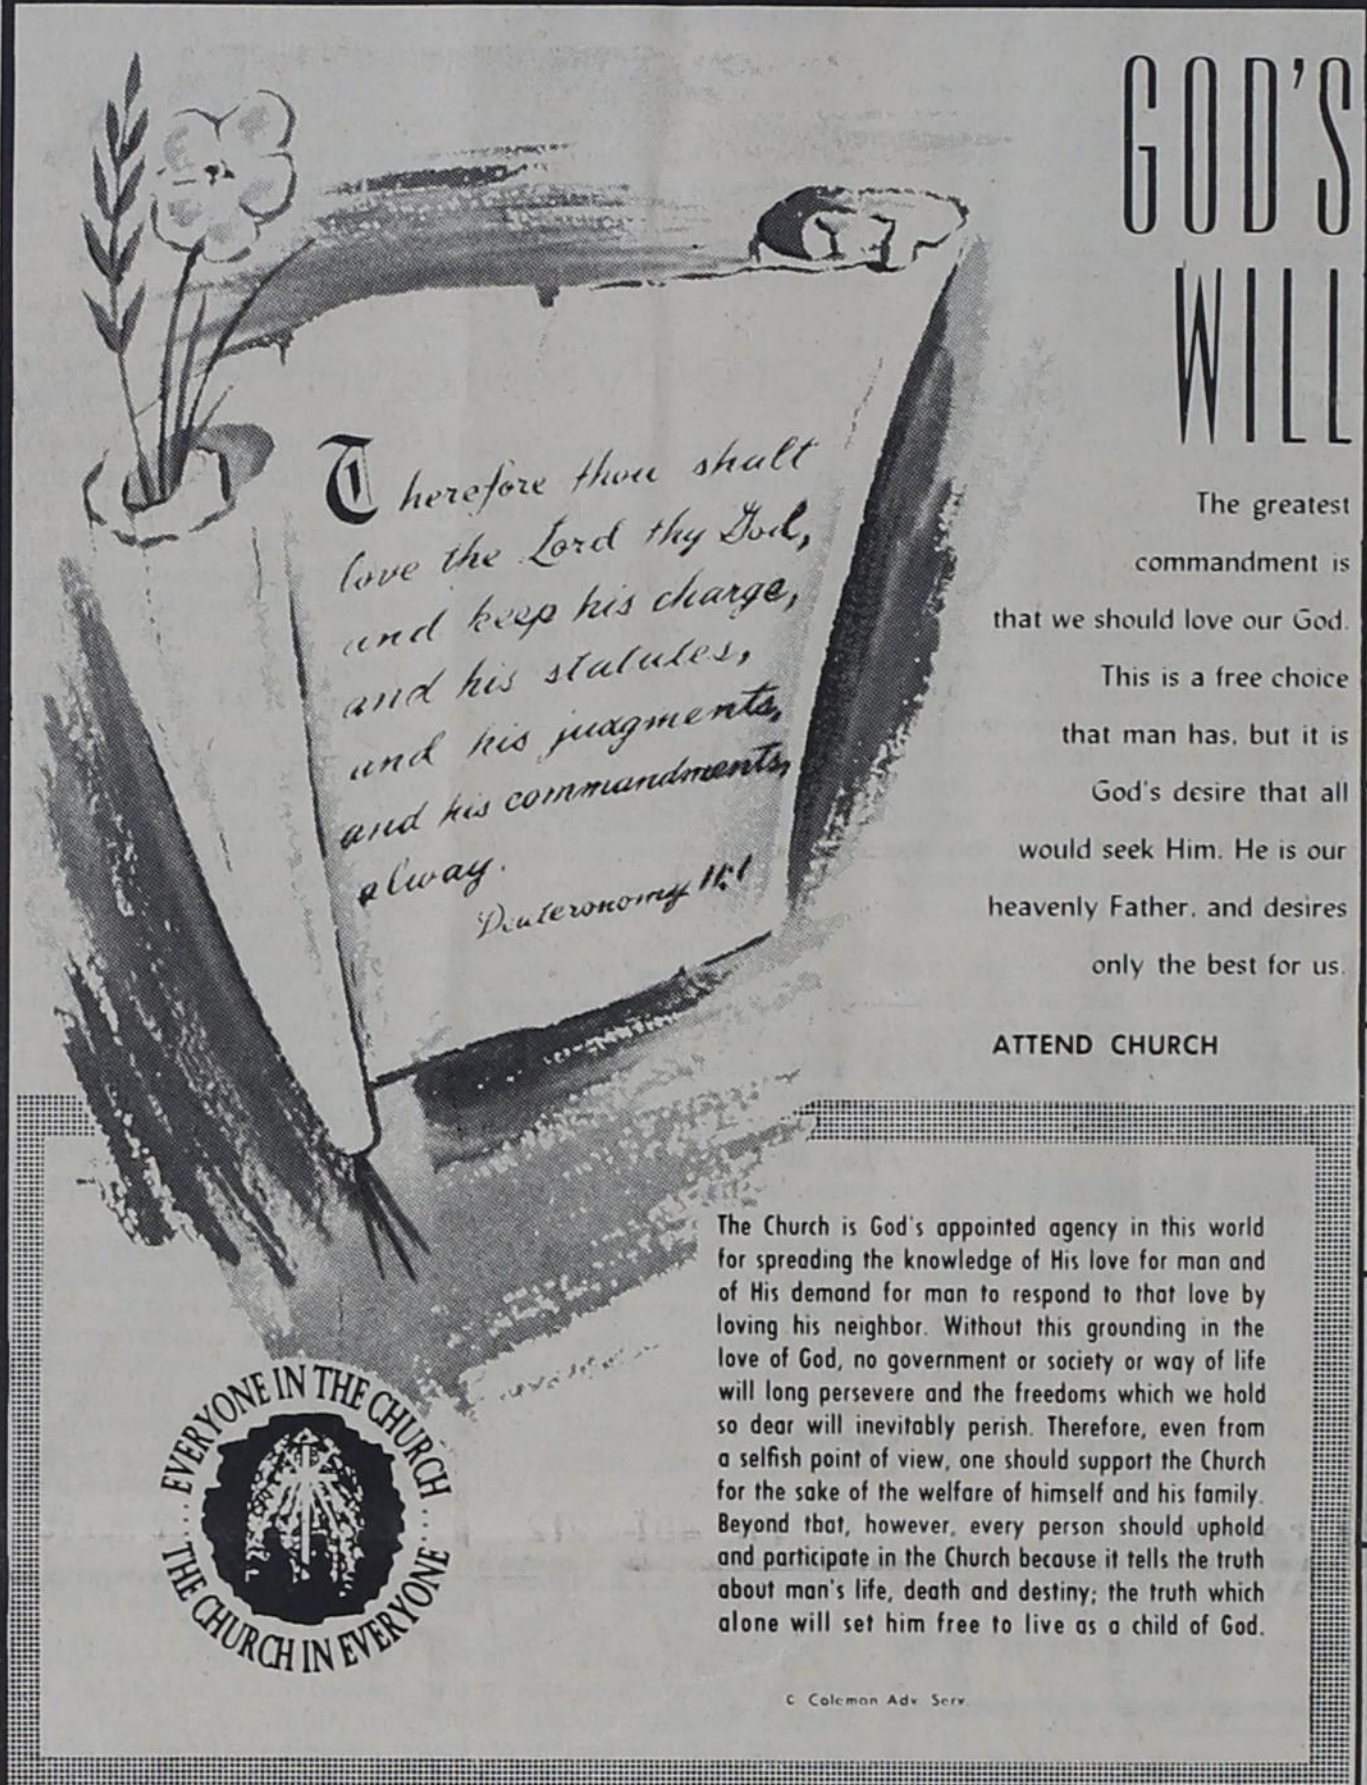 GOD'S
WILL
Therefore thou shalt
love the Lord thy God,
and keep his charge,
and his statutes,
and his judgments,
and his commandments,
alway.
Deuteronomy 11:1
The greatest
commandment is
that we should love our God.
This is a free choice
that man has, but it is
God's desire that all
would seek Him. He is our
heavenly Father, and desires
only the best for us.
ATTEND CHURCH
The Church is God's appointed agency in this world
for spreading the knowledge of His love for man and
of His demand for man to respond to that love by
loving his neighbor. Without this grounding in the
love of God, no government or society or way of life
will long persevere and the freedoms which we hold
so dear will inevitably perish. Therefore, even from
a selfish point of view, one should support the Church
for the sake of the welfare of himself and his family.
Beyond that, however, every person should uphold
and participate in the Church because it tells the truth
about man's life, death and destiny; the truth which
alone will set him free to live as a child of God.
EVERYONE IN THE CHURCH
THE CHURCH IN EVERYONE
C Coleman Adv. Serv.